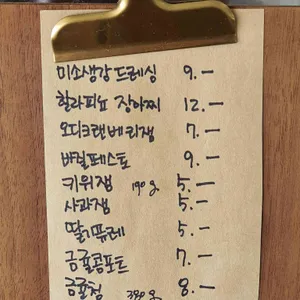 미소생강드레싱 9.—
할라피뇨 장아찌 12.—
오디크랜베리잼 7.—
바질페스토 9.—
키위잼 190g 5.—
사과잼 5.—
딸기퓨레 5.—
금귤콩포트 7.—
금귤청 380g 8.—